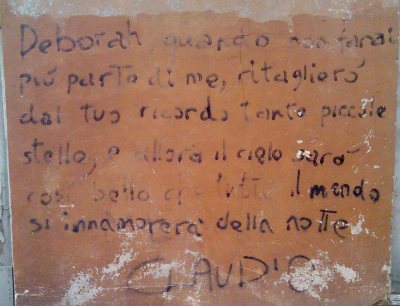 Deborah quando non farai
più parte di me, ritaglierò
dal tuo ricordo tante piccole
stelle, e allora il cielo sarà
così bello che tutto il mondo
si innamorerà della notte
CLAUDIO